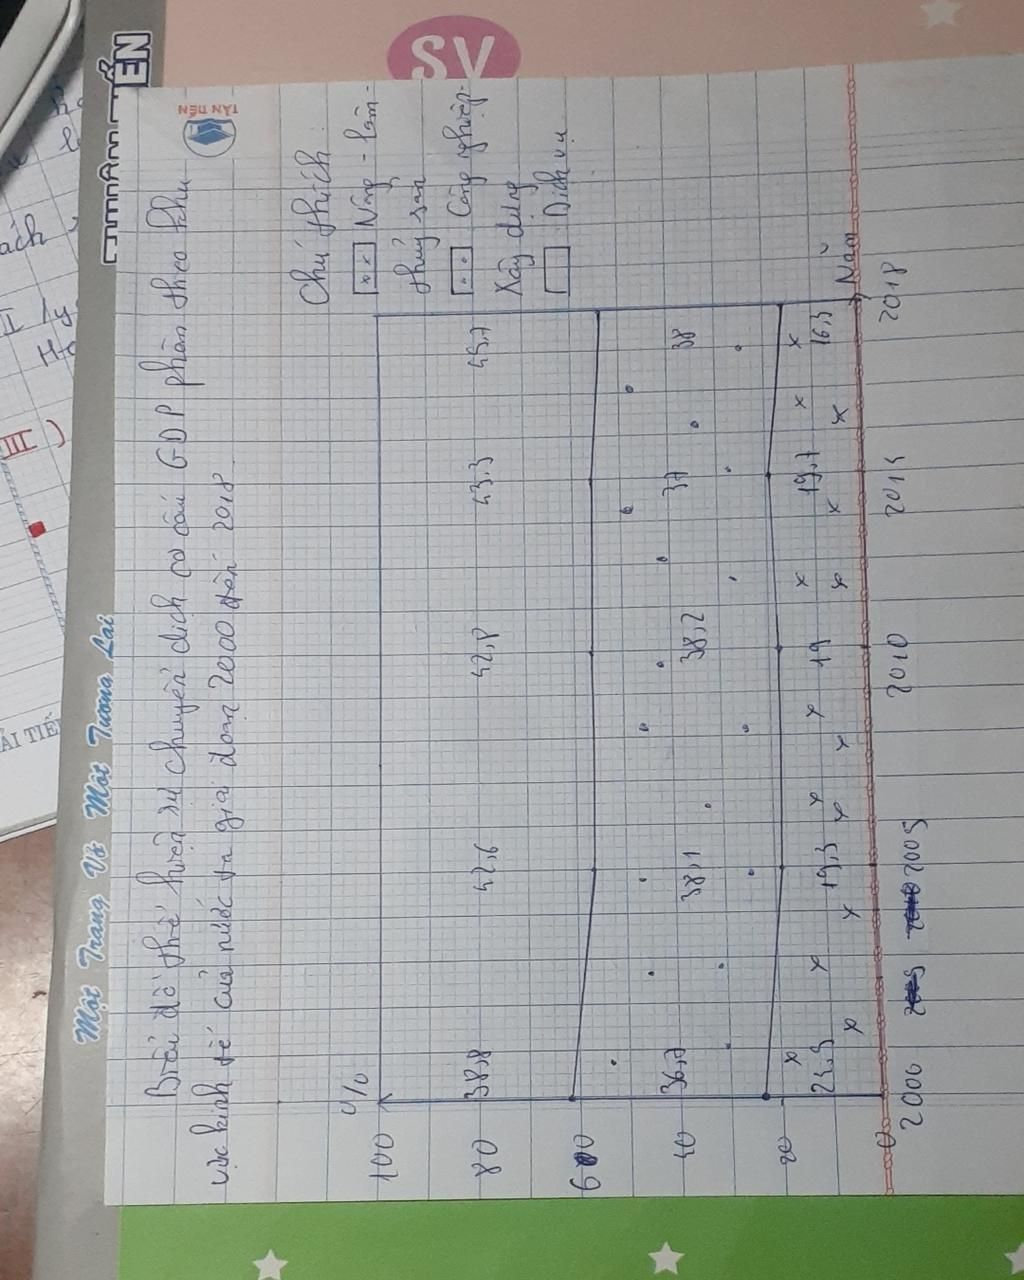 SV
TẤN TIẾN
Một Trang Vở Một Tương Lai
ẢI TIẾ
ách
III)
Biểu đồ thể hiện sự chuyển dịch cơ cấu GDP phân theo khu
vực kinh tế của nước ta giai đoạn 2000 đến 2018
%
Chú thích:
Nông - lâm -
thủy sản
Công nghiệp -
Xây dựng
Dịch vụ
100
80
60
40
20
0
38,8 42,6 42,8 43,3 45,7
36,7 38,1 38,2 37 38
24,5 19,3 19 19,7 16,3
Năm
2006 2005 2010 2015 2018